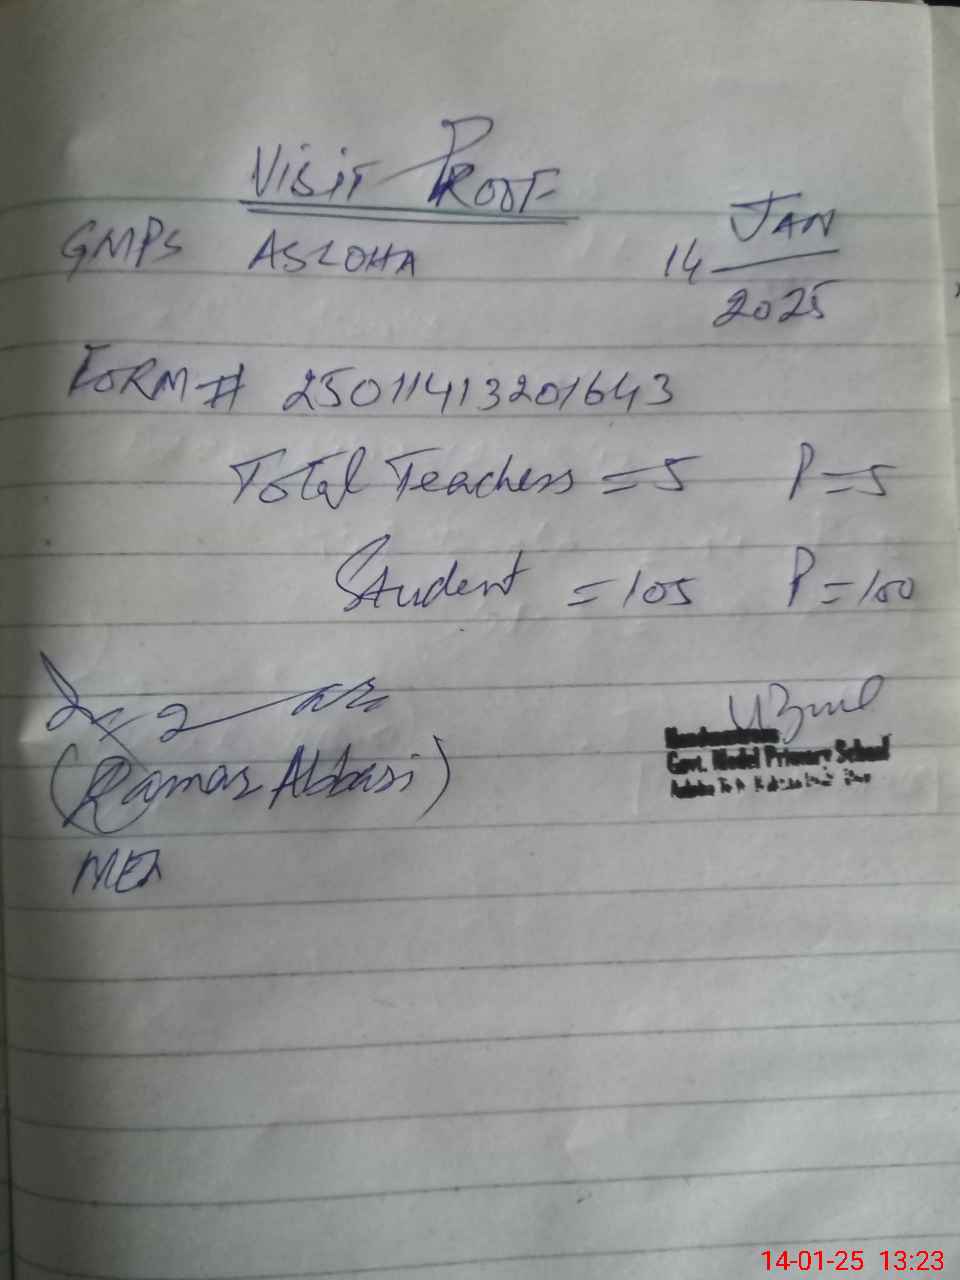 VISIT PROOF
GMPS ASLOHA 14 JAN
2025
FORM # 25011413201643
Total Teachers = 5 P = 5
Student = 105 P = 100
(Qamar Abbasi)
MEA
Headmistress
Govt. Model Primary School
14-01-25 13:23